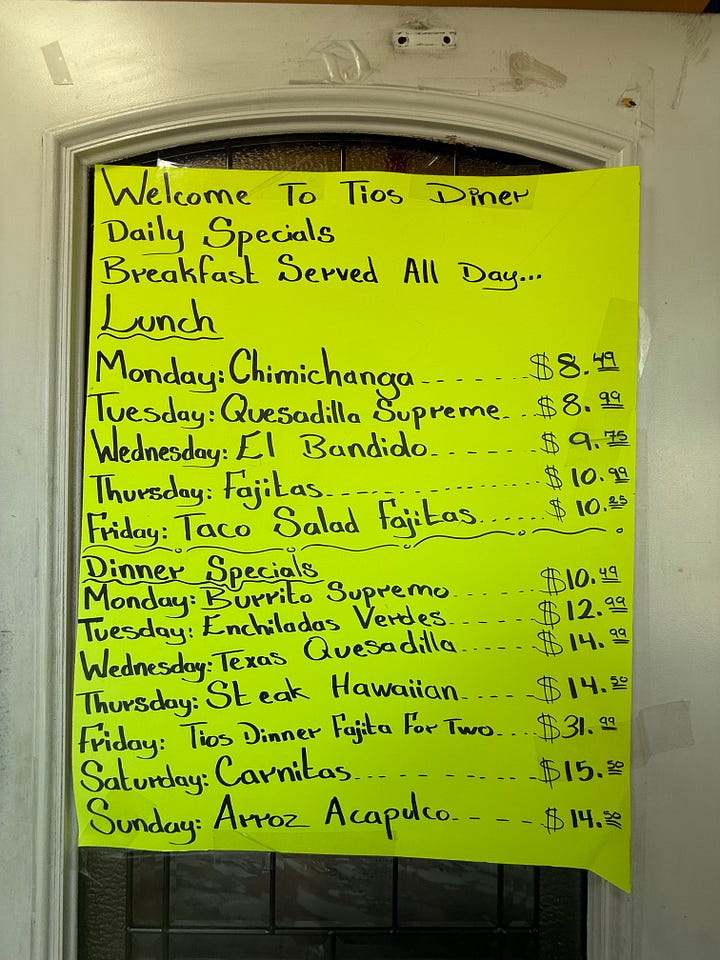 Welcome To Tios Diner
Daily Specials
Breakfast Served All Day...
Lunch
Monday: Chimichanga-------$8.49
Tuesday: Quesadilla Supreme--$8.99
Wednesday: El Bandido-------$9.75
Thursday: Fajitas-------------$10.99
Friday: Taco Salad Fajitas.....$10.25
Dinner Specials
Monday: Burrito Supremo------$10.49
Tuesday: Enchiladas Verdes-----$12.99
Wednesday: Texas Quesadilla-----$14.99
Thursday: Steak Hawaiian-----$14.50
Friday: Tios Dinner Fajita For Two---$31.99
Saturday: Carnitas-----------$15.50
Sunday: Arroz Acapulco------$14.50